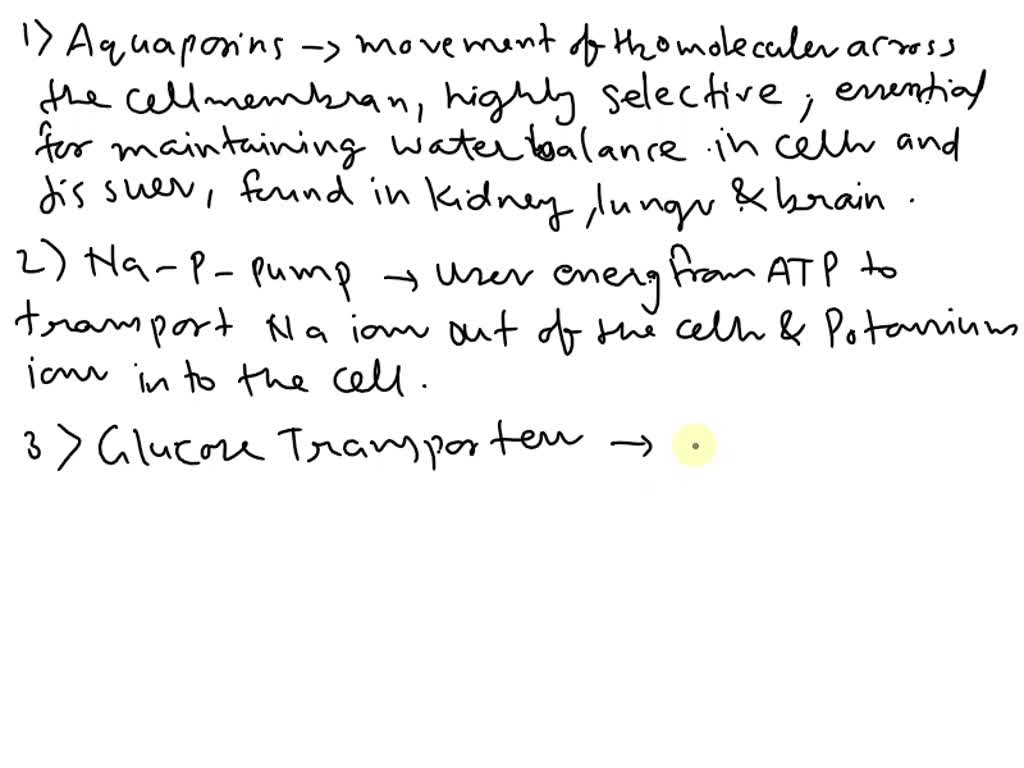 1) Aquaporins → movement of H2O molecules across
the cell membran, highly selective, essential
for maintaining water balance in cells and
tissues, found in kidney, lungs & brain.
2) Na-P-pump → uses energ from ATP to
transport Na ions out of the cells & Potassium
ions in to the cell.
3) Glucose Transporters →